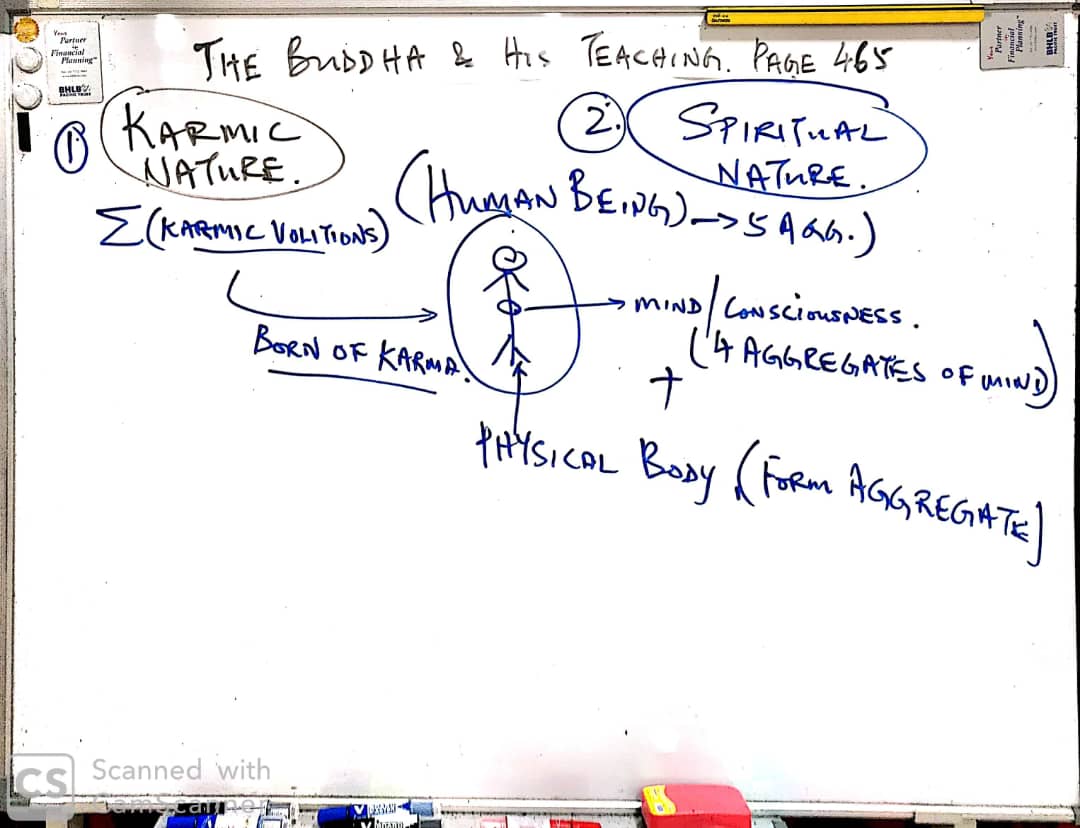 THE BUDDHA & HIS TEACHING. PAGE 465
Your
Partner
in
Financial
Planning
BHLB
PACIFIC TRUST
Your
Partner
in
Financial
Planning
BHLB
PACIFIC TRUST
① KARMIC
NATURE.
2. SPIRITUAL
NATURE.
(HUMAN BEING) → 5 AGG.)
Σ (KARMIC VOLITIONS)
BORN OF KARMA.
→ MIND / CONSCIOUSNESS.
(4 AGGREGATES OF MIND)
+
PHYSICAL BODY (FORM AGGREGATE)
CS Scanned with
CamScanner